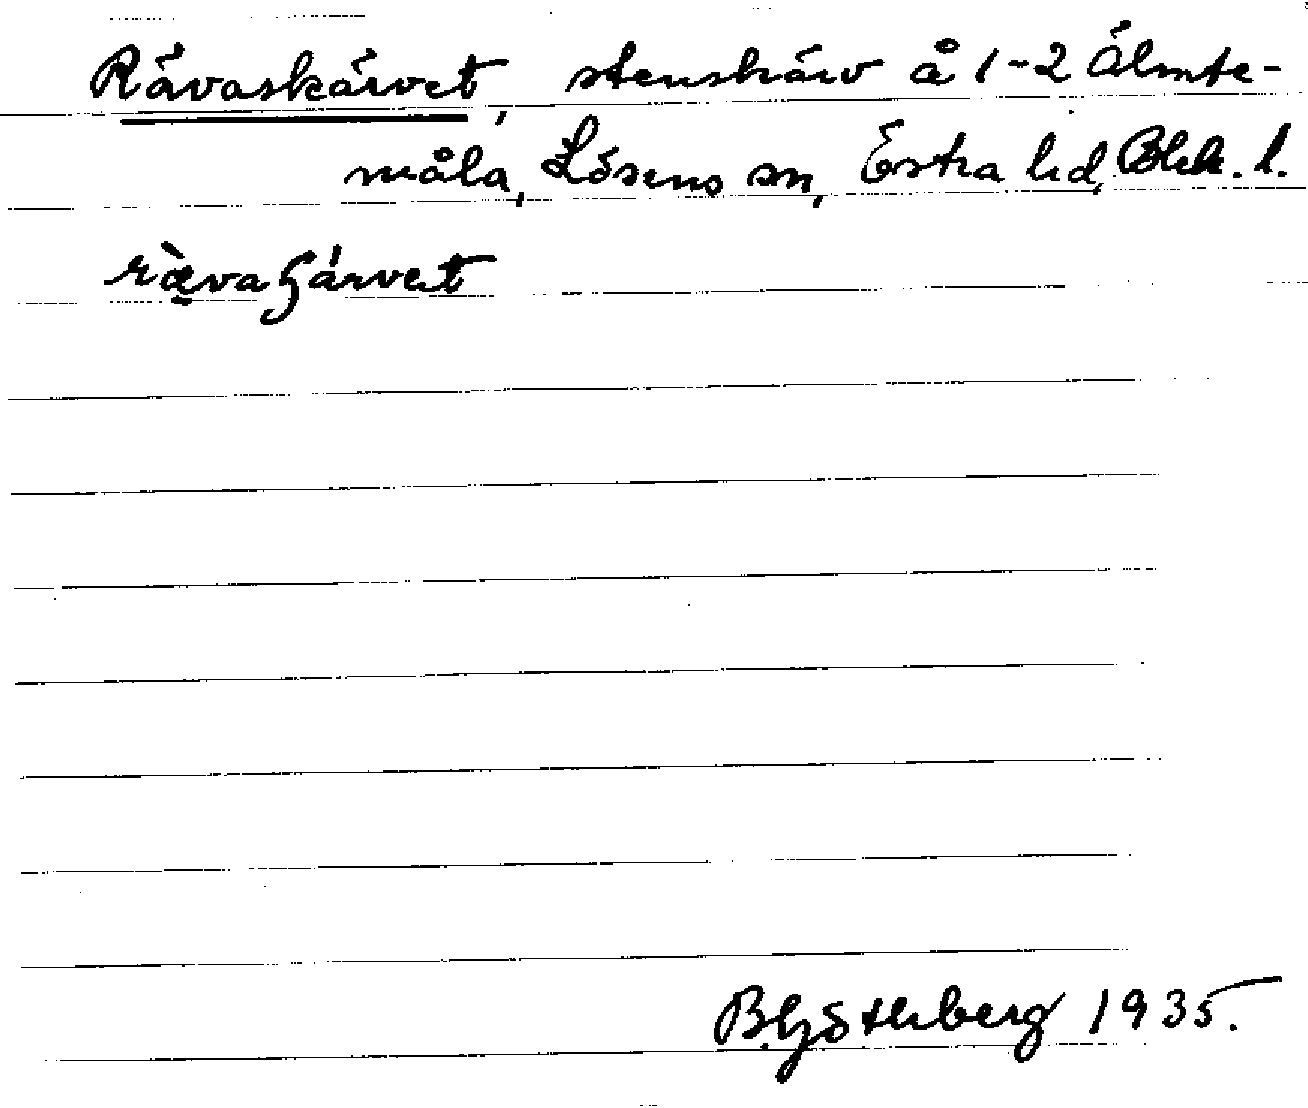 Rävaskärvet, stenskärv å 1-2 Älmte-
måla, Lösens sn, Östra hd, Blek. l.
rὰvaɧárvet
B. Götlberg 1935.